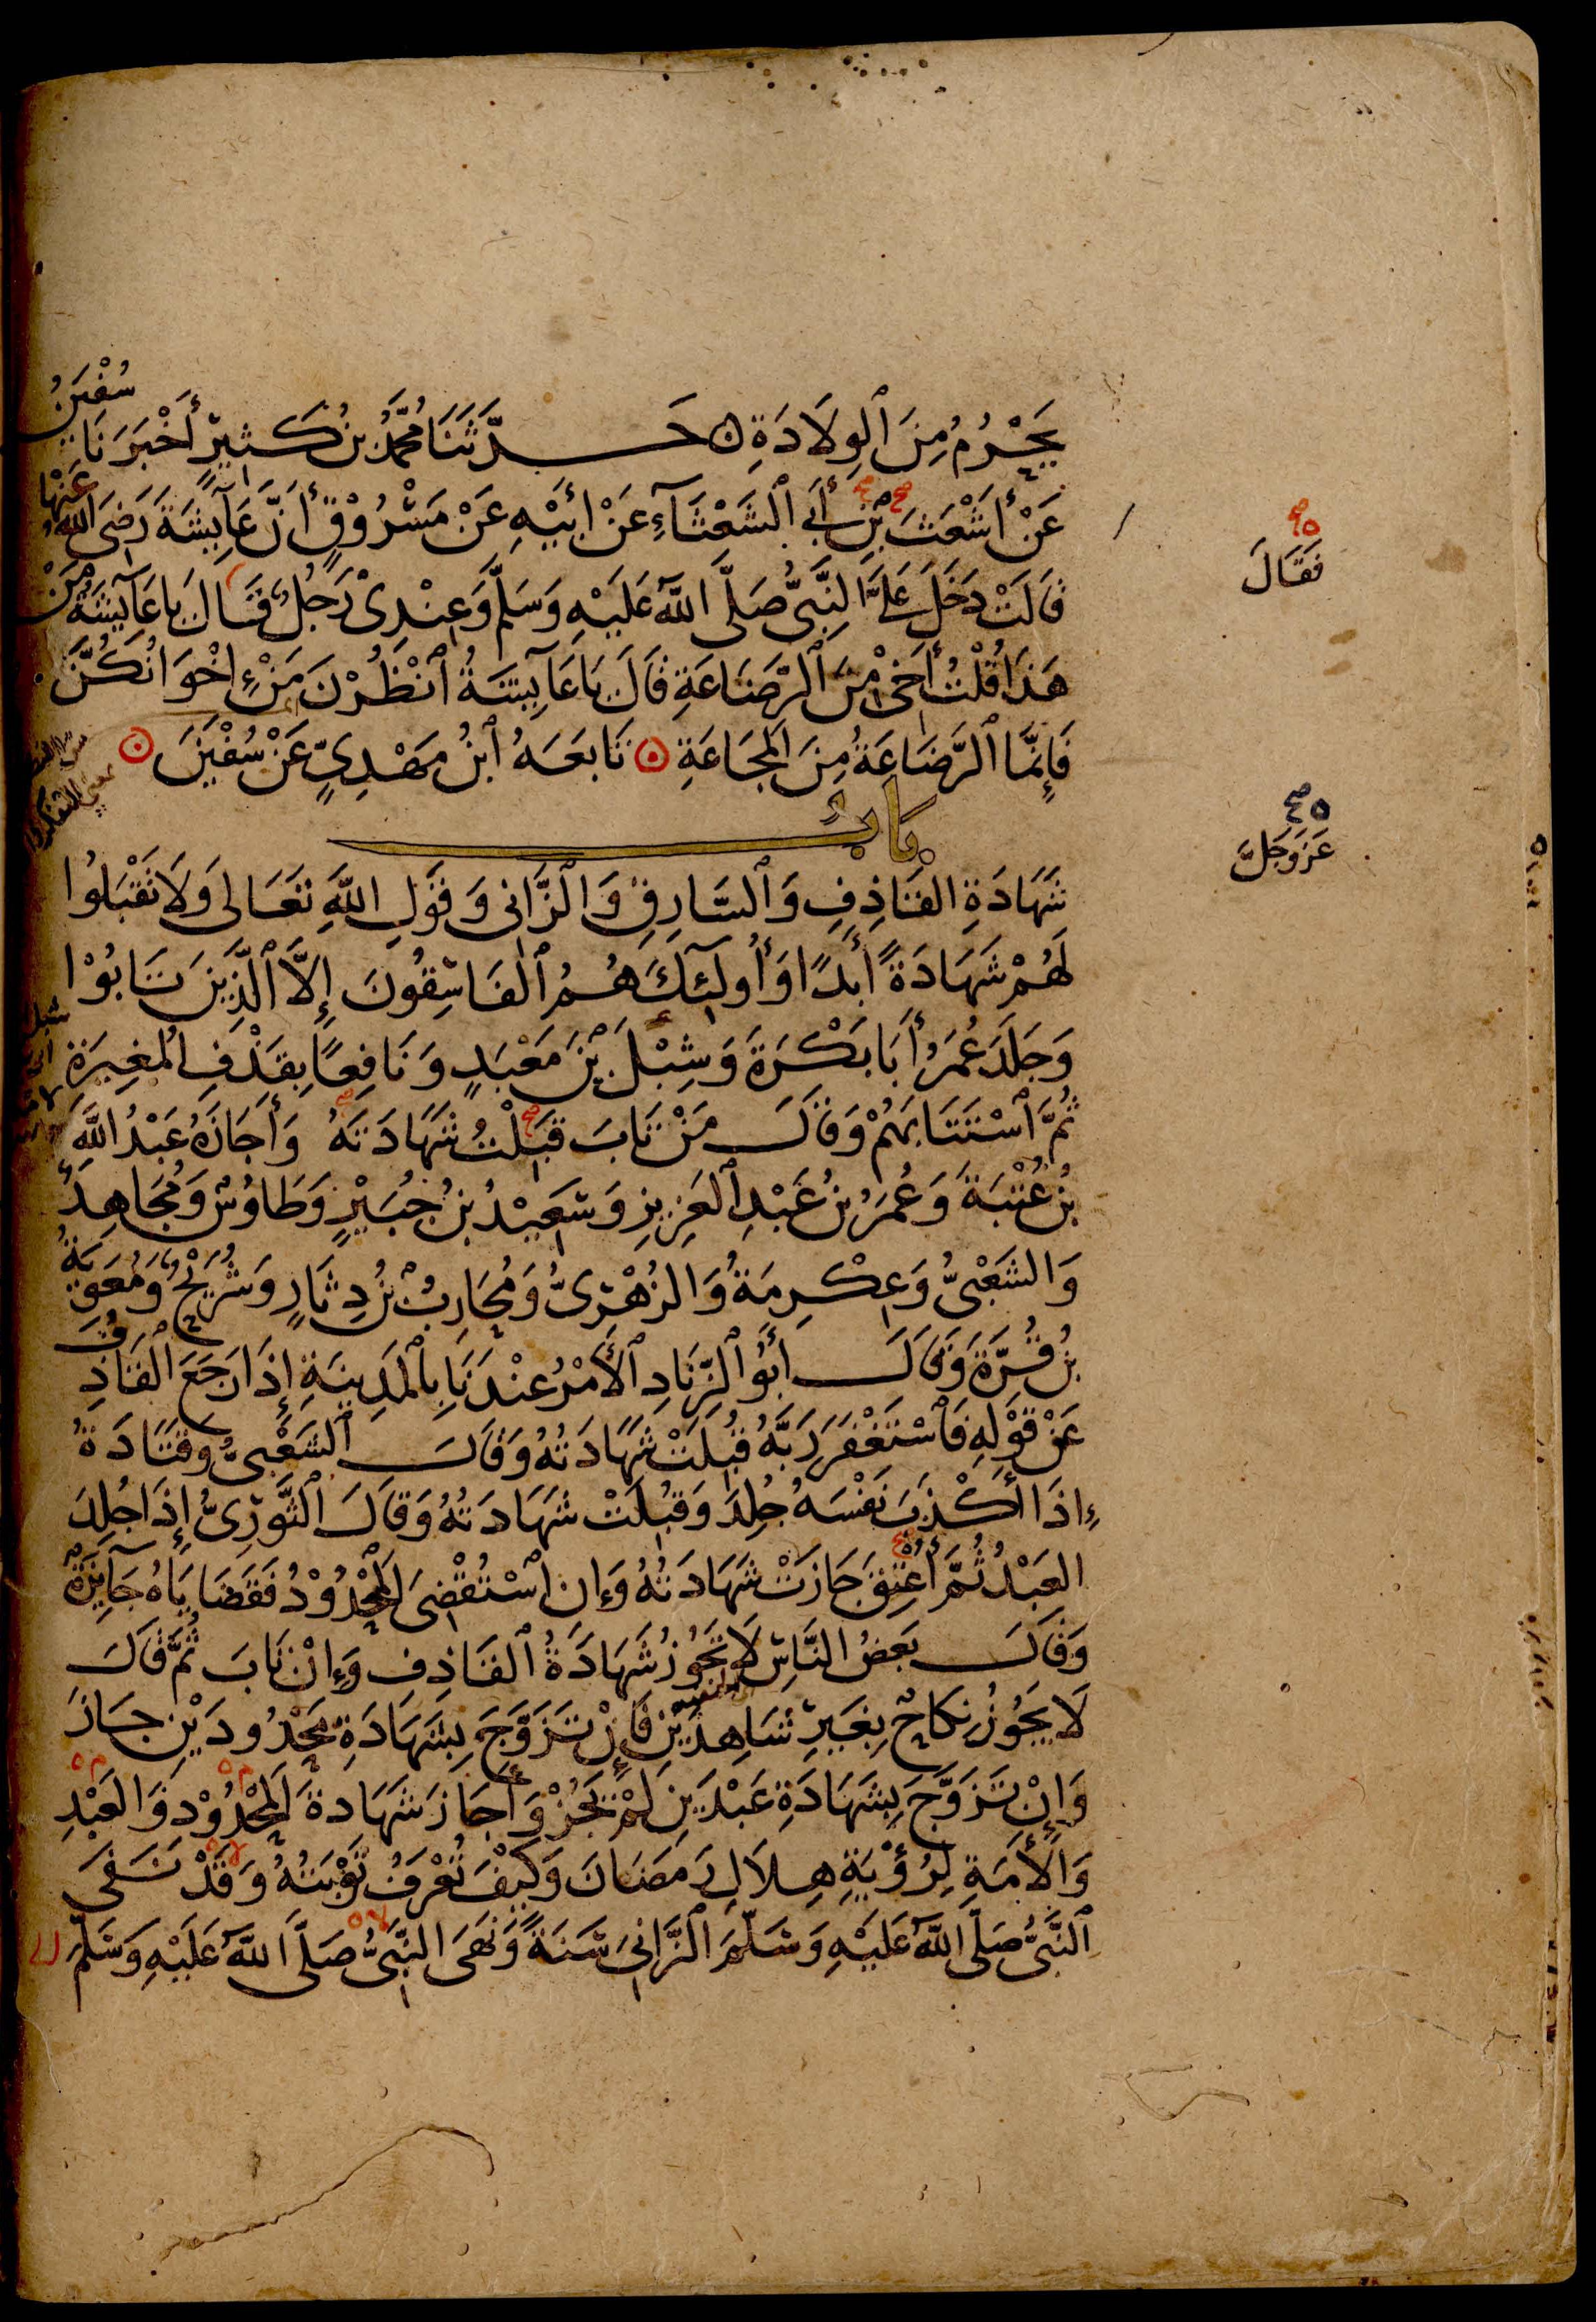 يَحْرُمُ مِنَ ٱلْوِلَادَةِ ۝ حَدَّثَنَا مُحَمَّدُ بْنُ كَثِيرٍ أَخْبَرَنَا سُفْيٰنُ
عَنْ أَشْعَثَ بْنِ أَبِي ٱلشَّعْثَآءِ عَنْ أَبِيْهِ عَنْ مَسْرُوْقٍ أَنَّ عَآيِشَةَ رَضِيَ اللّٰهُ عَنْهَا
قَالَتْ دَخَلَ عَلَيَّ النَّبِيُّ صَلَّى اللّٰهُ عَلَيْهِ وَسَلَّمَ وَعِنْدِىْ رَجُلٌ قَالَ يَا عَآيِشَةُ مَنْ
هَذَا قُلْتُ أَخِىْ مِنَ ٱلرَّضَاعَةِ قَالَ يَا عَآيِشَةُ ٱنْظُرْنَ مَنْ إِخْوَانُكُنَّ
فَإِنَّمَا ٱلرَّضَاعَةُ مِنَ الْمَجَاعَةِ ۝ تَابَعَهُ ٱبْنُ مَهْدِيٍّ عَنْ سُفْيٰنَ ۝
فَقَالَ
بَابُ
عَزَّ وَجَلَّ
شَهَادَةِ القَاذِفِ وَٱلسَّارِقِ وَٱلزَّانِى وَقَوْلِ اللّٰهِ تَعَالَى وَلَا تَقْبَلُوا
لَهُمْ شَهَادَةً أَبَدًا وَأُولَٓئِكَ هُمُ ٱلْفَاسِقُونَ إِلَّا ٱلَّذِيْنَ تَابُوْا
وَجَلَدَ عُمَرُ أَبَا بَكْرَةَ وَشِبْلَ بْنَ مَعْبَدٍ وَنَافِعًا بِقَذْفِ الْمُغِيرَةِ
ثُمَّ ٱسْتَتَابَهُمْ وَقَالَ مَنْ تَابَ قَبِلْتُ شَهَادَتَهُ وَأَجَازَهُ عَبْدُ اللّٰهِ
بْنُ عُتْبَةَ وَعُمَرُ بْنُ عَبْدِ ٱلْعَزِيزِ وَسَعِيْدُ بْنُ جُبَيْرٍ وَطَاوُسٌ وَمُجَاهِدٌ
وَالشَّعْبِىُّ وَعِكْرِمَةُ وَالزُّهْرِىُّ وَمُحَارِبُ بْنُ دِثَارٍ وَشُرَيْحٌ وَمُعٰوِيَةُ
بْنُ قُرَّةَ وَقَالَ أَبُو ٱلزِّنَادِ ٱلْأَمْرُ عِنْدَنَا بِالْمَدِينَةِ إِذَا رَجَعَ ٱلْقَاذِفُ
عَنْ قَوْلِهِ فَٱسْتَغْفَرَ رَبَّهُ قُبِلَتْ شَهَادَتُهُ وَقَالَ ٱلشَّعْبِىُّ وَقَتَادَةُ
إِذَا أَكْذَبَ نَفْسَهُ جُلِدَ وَقُبِلَتْ شَهَادَتُهُ وَقَالَ ٱلثَّوْرِىُّ إِذَا جُلِدَ
العَبْدُ ثُمَّ أُعْتِقَ جَازَتْ شَهَادَتُهُ وَإِنِ ٱسْتُقْضِىَ الْمَحْدُوْدُ فَقَضَايَاهُ جَآئِزَةٌ
وَقَالَ بَعْضُ النَّاسِ لَا تَجُوْزُ شَهَادَةُ ٱلْقَاذِفِ وَإِنْ تَابَ ثُمَّ قَالَ
لَا يَجُوْزُ نِكَاحٌ بِغَيْرِ شَاهِدَيْنِ فَإِنْ تَزَوَّجَ بِشَهَادَةِ مَحْدُودَيْنِ جَازَ
وَإِنْ تَزَوَّجَ بِشَهَادَةِ عَبْدَيْنِ لَمْ يَجُزْ وَأَجَازَ شَهَادَةَ الْمَحْدُوْدِ وَالعَبْدِ
وَالأَمَةِ لِرُؤْيَةِ هِلَالِ رَمَضَانَ وَكَيْفَ تُعْرَفُ تَوْبَتُهُ وَقَدْ نَفَى
ٱلنَّبِىُّ صَلَّى اللّٰهُ عَلَيْهِ وَسَلَّمَ ٱلزَّانِىَ سَنَةً وَنَهَى النَّبِىُّ صَلَّى اللّٰهُ عَلَيْهِ وَسَلَّمَ